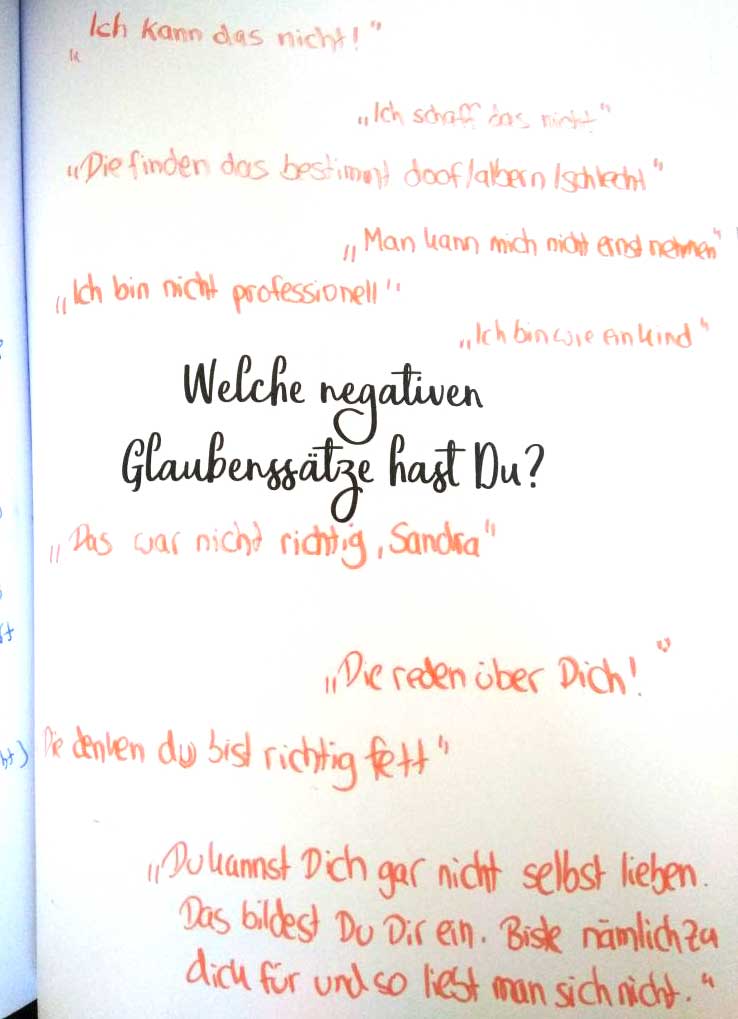 „Ich kann das nicht!"
„Ich schaff das nicht"
„Die finden das bestimmt doof/albern/schlecht"
„Man kann mich nicht ernst nehmen"
„Ich bin nicht professionell"
„Ich bin wie ein Kind"
Welche negativen
Glaubenssätze hast Du?
„Das war nicht richtig, Sandra"
„Die reden über Dich!"
Die denken du bist richtig fett"
„Du kannst Dich gar nicht selbst lieben.
Das bildest Du Dir ein. Biste nämlich zu
dick für und so liebt man sich nicht."